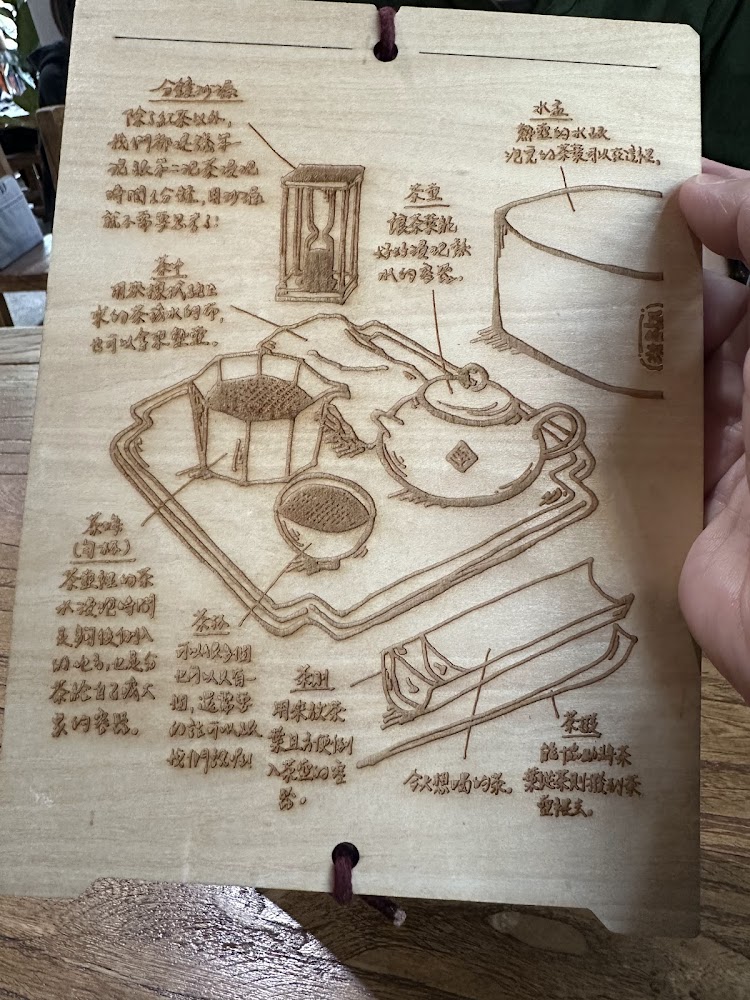 分鐘沙漏
除了紅茶以外，
我們都建議第一
泡跟第二泡茶浸泡
時間1分鐘，用沙漏
就不需要思考了！
水盂
熱壺的水跟
泡完的茶葉可以在這裡。
茶壺
讓茶葉能
好好浸泡熱
水的容器。
茶巾
用來擦拭桌上
來的茶或水的布，
也可以拿來墊壺。
茶海
(勻杯)
茶壺裡的茶
水浸泡時間
到，倒
的，也是分
茶給自己或大
家的容器。
茶杯
可以很多個
也可以只有一
個，需要
的話可以跟
我們說喔
茶則
用來放茶
葉且方便倒
入茶壺的容
器。
今天想喝的茶。
茶撥
能
葉從茶則撥到茶
壺裡去。